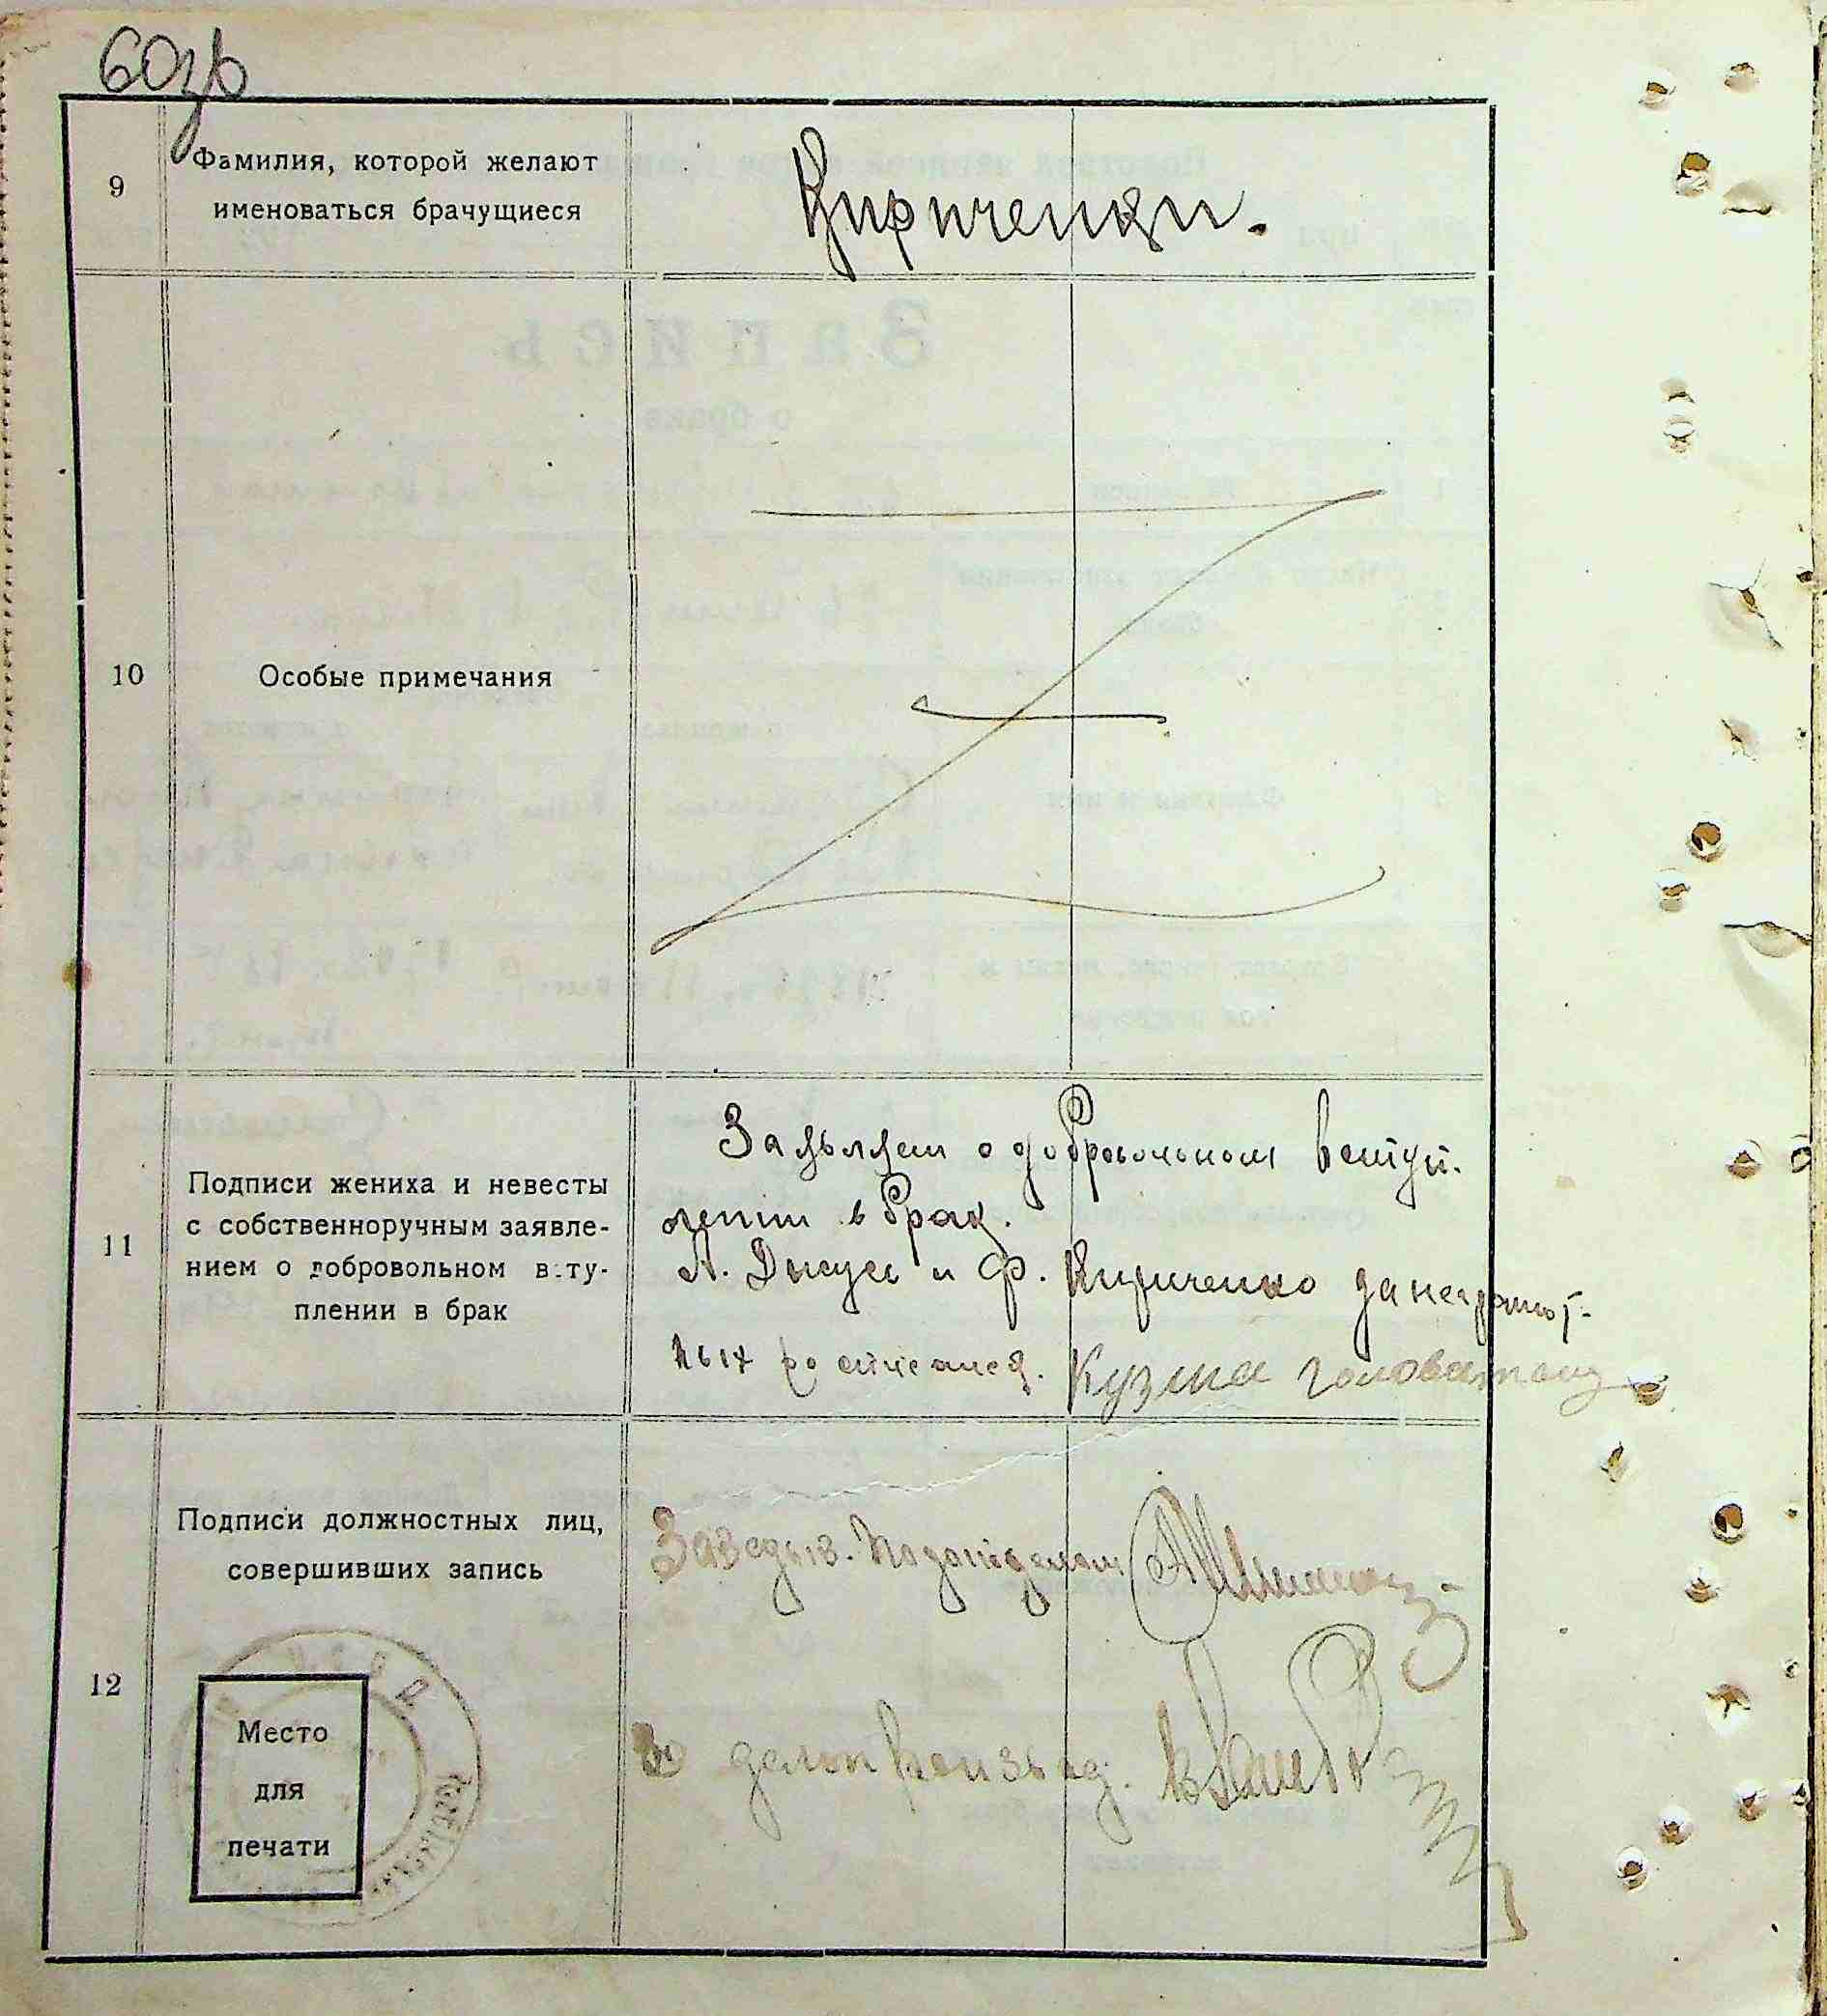 60зв
9
Фамилия, которой желают
именоваться брачущиеся
Кириченки.
10
Особые примечания
11
Подписи жениха и невесты
с собственноручным заявле-
нием о добровольном всту-
плении в брак
Заявляем о добровольном вступ-
лении в брак.
А. и Ф. Кириченко за неграмот-
ных росписался. Кузма Головатенко
12
Подписи должностных лиц,
совершивших запись
Заведыв. Подотделом
делопроизвод.
Место
для
печати